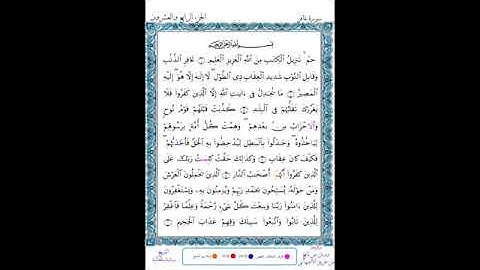 سورة غافر
الجزء الرابع والعشرون
بسم الله الرحمن الرحيم
حم ۝ تنزيل الكتب من الله العزيز العليم ۝ غافر الذنب
وقابل التوب شديد العقاب ذي الطول لا إله إلا هو إليه
المصير ۝ ما يجدل في ءايت الله إلا الذين كفروا فلا
يغررك تقلبهم في البلد ۝ كذبت قبلهم قوم نوح
والأحزاب من بعدهم وهمت كل أمة برسولهم
ليأخذوه وجدلوا بالبطل ليدحضوا به الحق فأخذتهم
فكيف كان عقاب ۝ وكذلك حقت كلمت ربك على
الذين كفروا أنهم أصحب النار ۝ الذين يحملون العرش
ومن حوله يسبحون بحمد ربهم ويؤمنون به ويستغفرون
للذين ءامنوا ربنا وسعت كل شيء رحمة وعلما فاغفر
للذين تابوا واتبعوا سبيلك وقهم عذاب الجحيم ۝